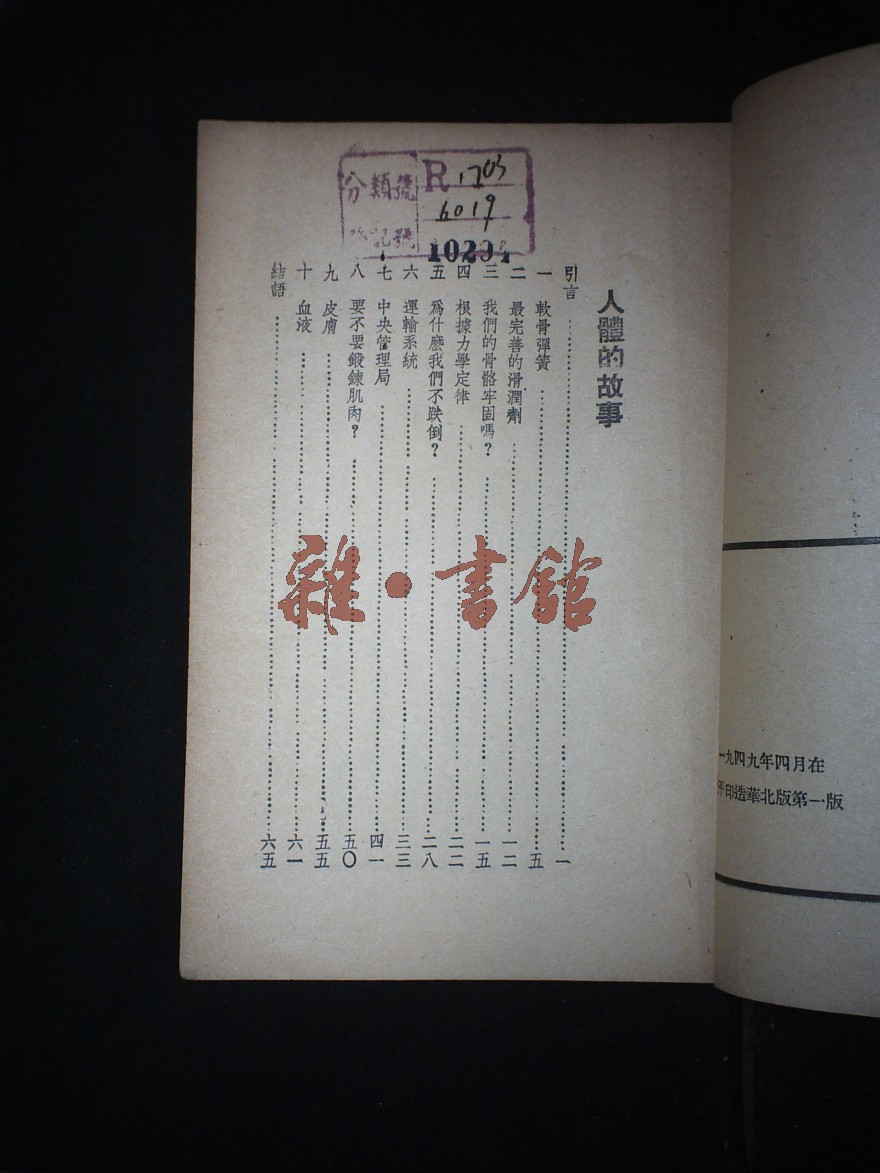 人體的故事
引言……一
一 軟骨彈簧……五
二 最完善的滑潤劑……一二
三 我們的骨骼牢固嗎？……一五
四 根據力學定律……二二
五 爲什麽我們不跌倒？……二八
六 運輸系統……三三
七 中央管理局……四一
八 要不要鍛鍊肌肉？……五〇
九 皮膚……五五
十 血液……六一
結語……六五
分類號 R 1703
6019
記號
雜·書館
一九四九年四月在
印造華北版第一版